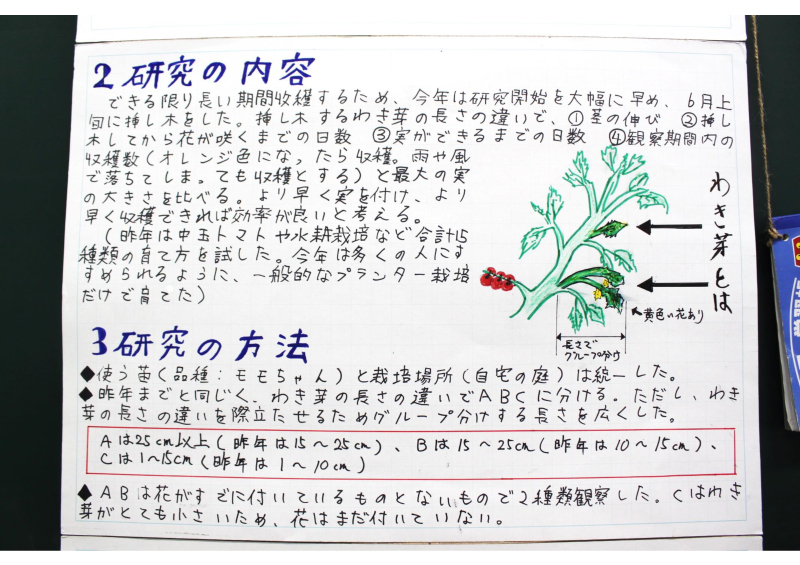 2 研究の内容
できる限り長い期間収穫するため、今年は研究開始を大幅に早め、6月上
旬に挿し木をした。挿し木するわき芽の長さの違いで、①茎の伸び ②挿し
木してから花が咲くまでの日数 ③実ができるまでの日数 ④観察期間内の
収穫数(オレンジ色になったら収穫。雨や風
で落ちてしまっても収穫とする)と最大の実
の大きさを比べる。より早く実を付け、より
早く収穫できれば効率が良いと考える。
(昨年は中玉トマトや水耕栽培など合計15
種類の育て方を試した。今年は多くの人にす
すめられるように、一般的なプランター栽培
だけで育てた)
わき芽とは
黄色い花あり
長さで
グループ分け
3 研究の方法
◆使う苗(品種:モモちゃん)と栽培場所(自宅の庭)は統一した。
◆昨年までと同じく、わき芽の長さの違いでABCに分ける。ただし、わき
芽の長さの違いを際立たせるためグループ分けする長さを広くした。
Aは25cm以上(昨年は15～25cm)、Bは15～25cm(昨年は10～15cm)、
Cは1～15cm(昨年は1～10cm)
◆ABは花がすでに付いているものとないもので2種類観察した。Cはわき
芽がとても小さいため、花はまだ付いていない。